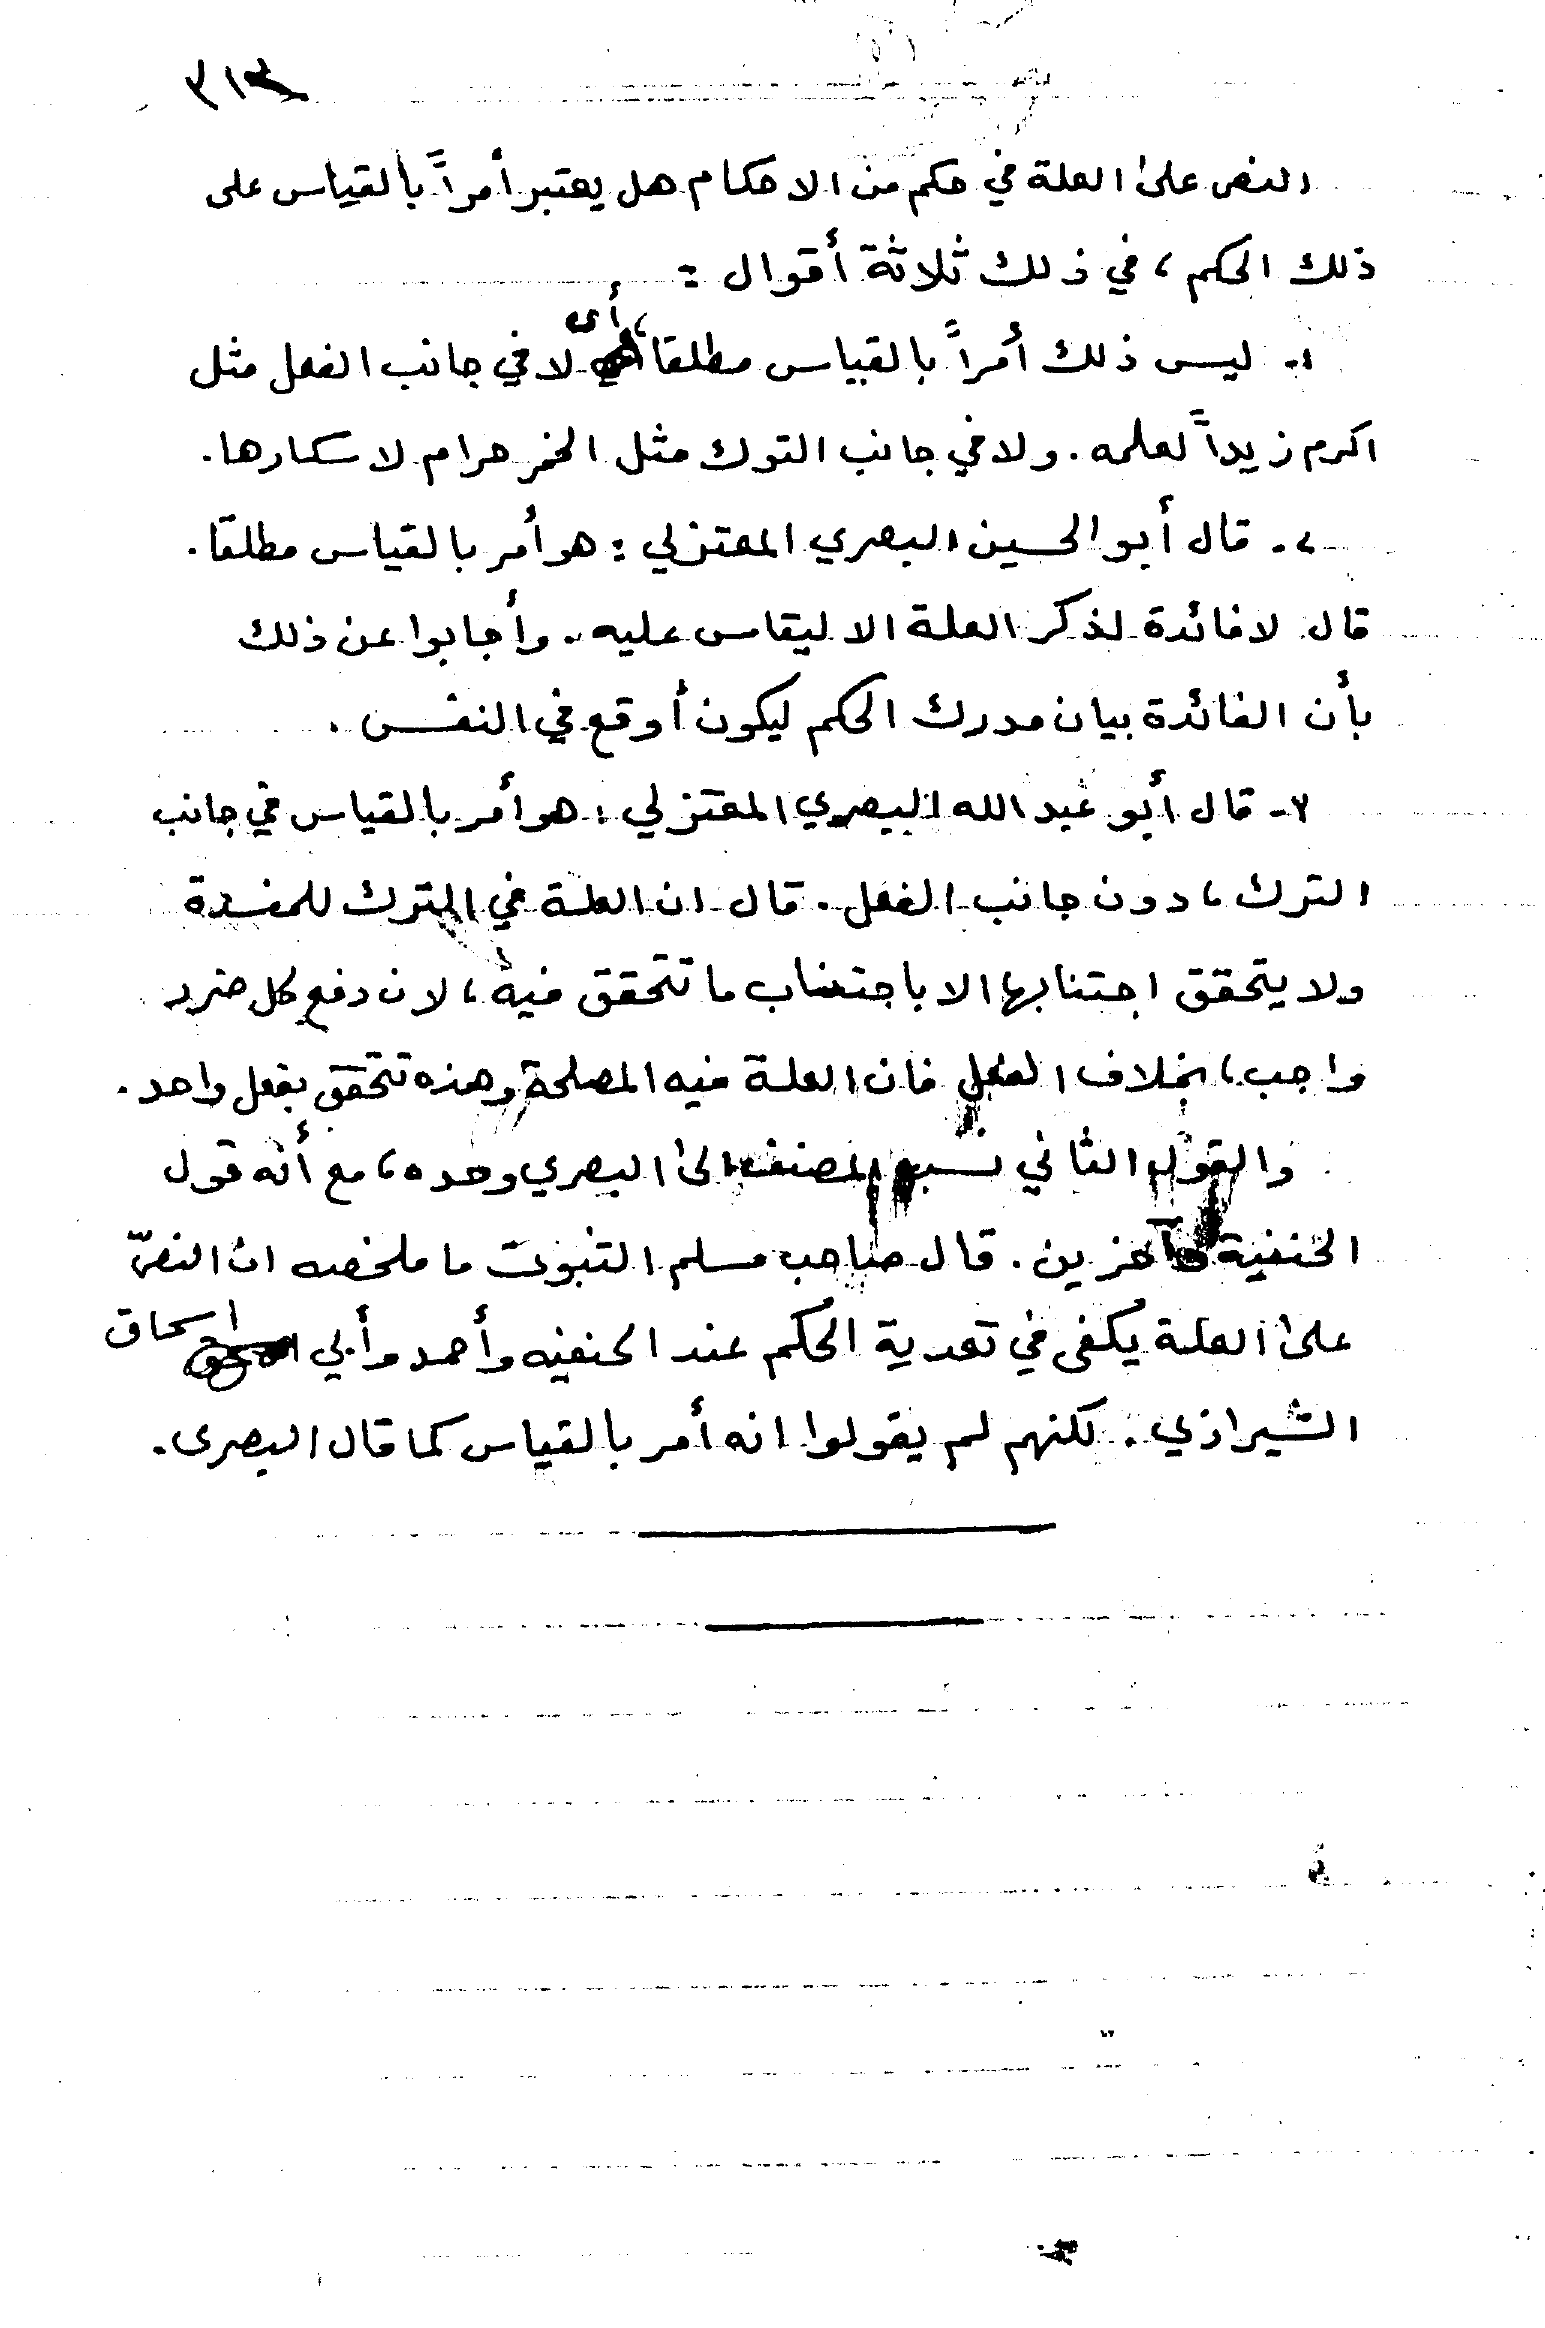 النص على العلة في حكم من الاحكام هل يعتبر أمراً بالقياس على
ذلك الحكم ، في ذلك ثلاثة أقوال :
١- ليس ذلك أمراً بالقياس مطلقا ، أي لا في جانب الفعل مثل
اكرم زيداً لعلمه . ولا في جانب الترك مثل الخمر حرام لاسكارها .
٢- قال أبو الحسين البصري المعتزلي : هو أمر بالقياس مطلقا .
قال لا فائدة لذكر العلة الا ليقاس عليه . وأجابوا عن ذلك
بأن الفائدة بيان مدرك الحكم ليكون أوقع في النفس .
٣- قال أبو عبد الله البصري المعتزلي : هو أمر بالقياس في جانب
الترك ، دون جانب الفعل . قال ان العلة في الترك للمفسدة
ولا يتحقق اجتنابها الا باجتناب ما تتحقق فيه ، لان دفع كل ضرر
واجب ، بخلاف الفعل فان العلة فيه المصلحة وهذه تتحقق بفعل واحد .
والقول الثاني نسبه المصنف الى البصري وحده ، مع أنه قول
الحنفية وآخرين . قال صاحب مسلم الثبوت ما ملخصه ان النصّ
على العلة يكفى في تعدية الحكم عند الحنفيه وأحمد وأبي اسحاق
الشيرازي . لكنهم لم يقولوا انه أمر بالقياس كما قال البصرى .